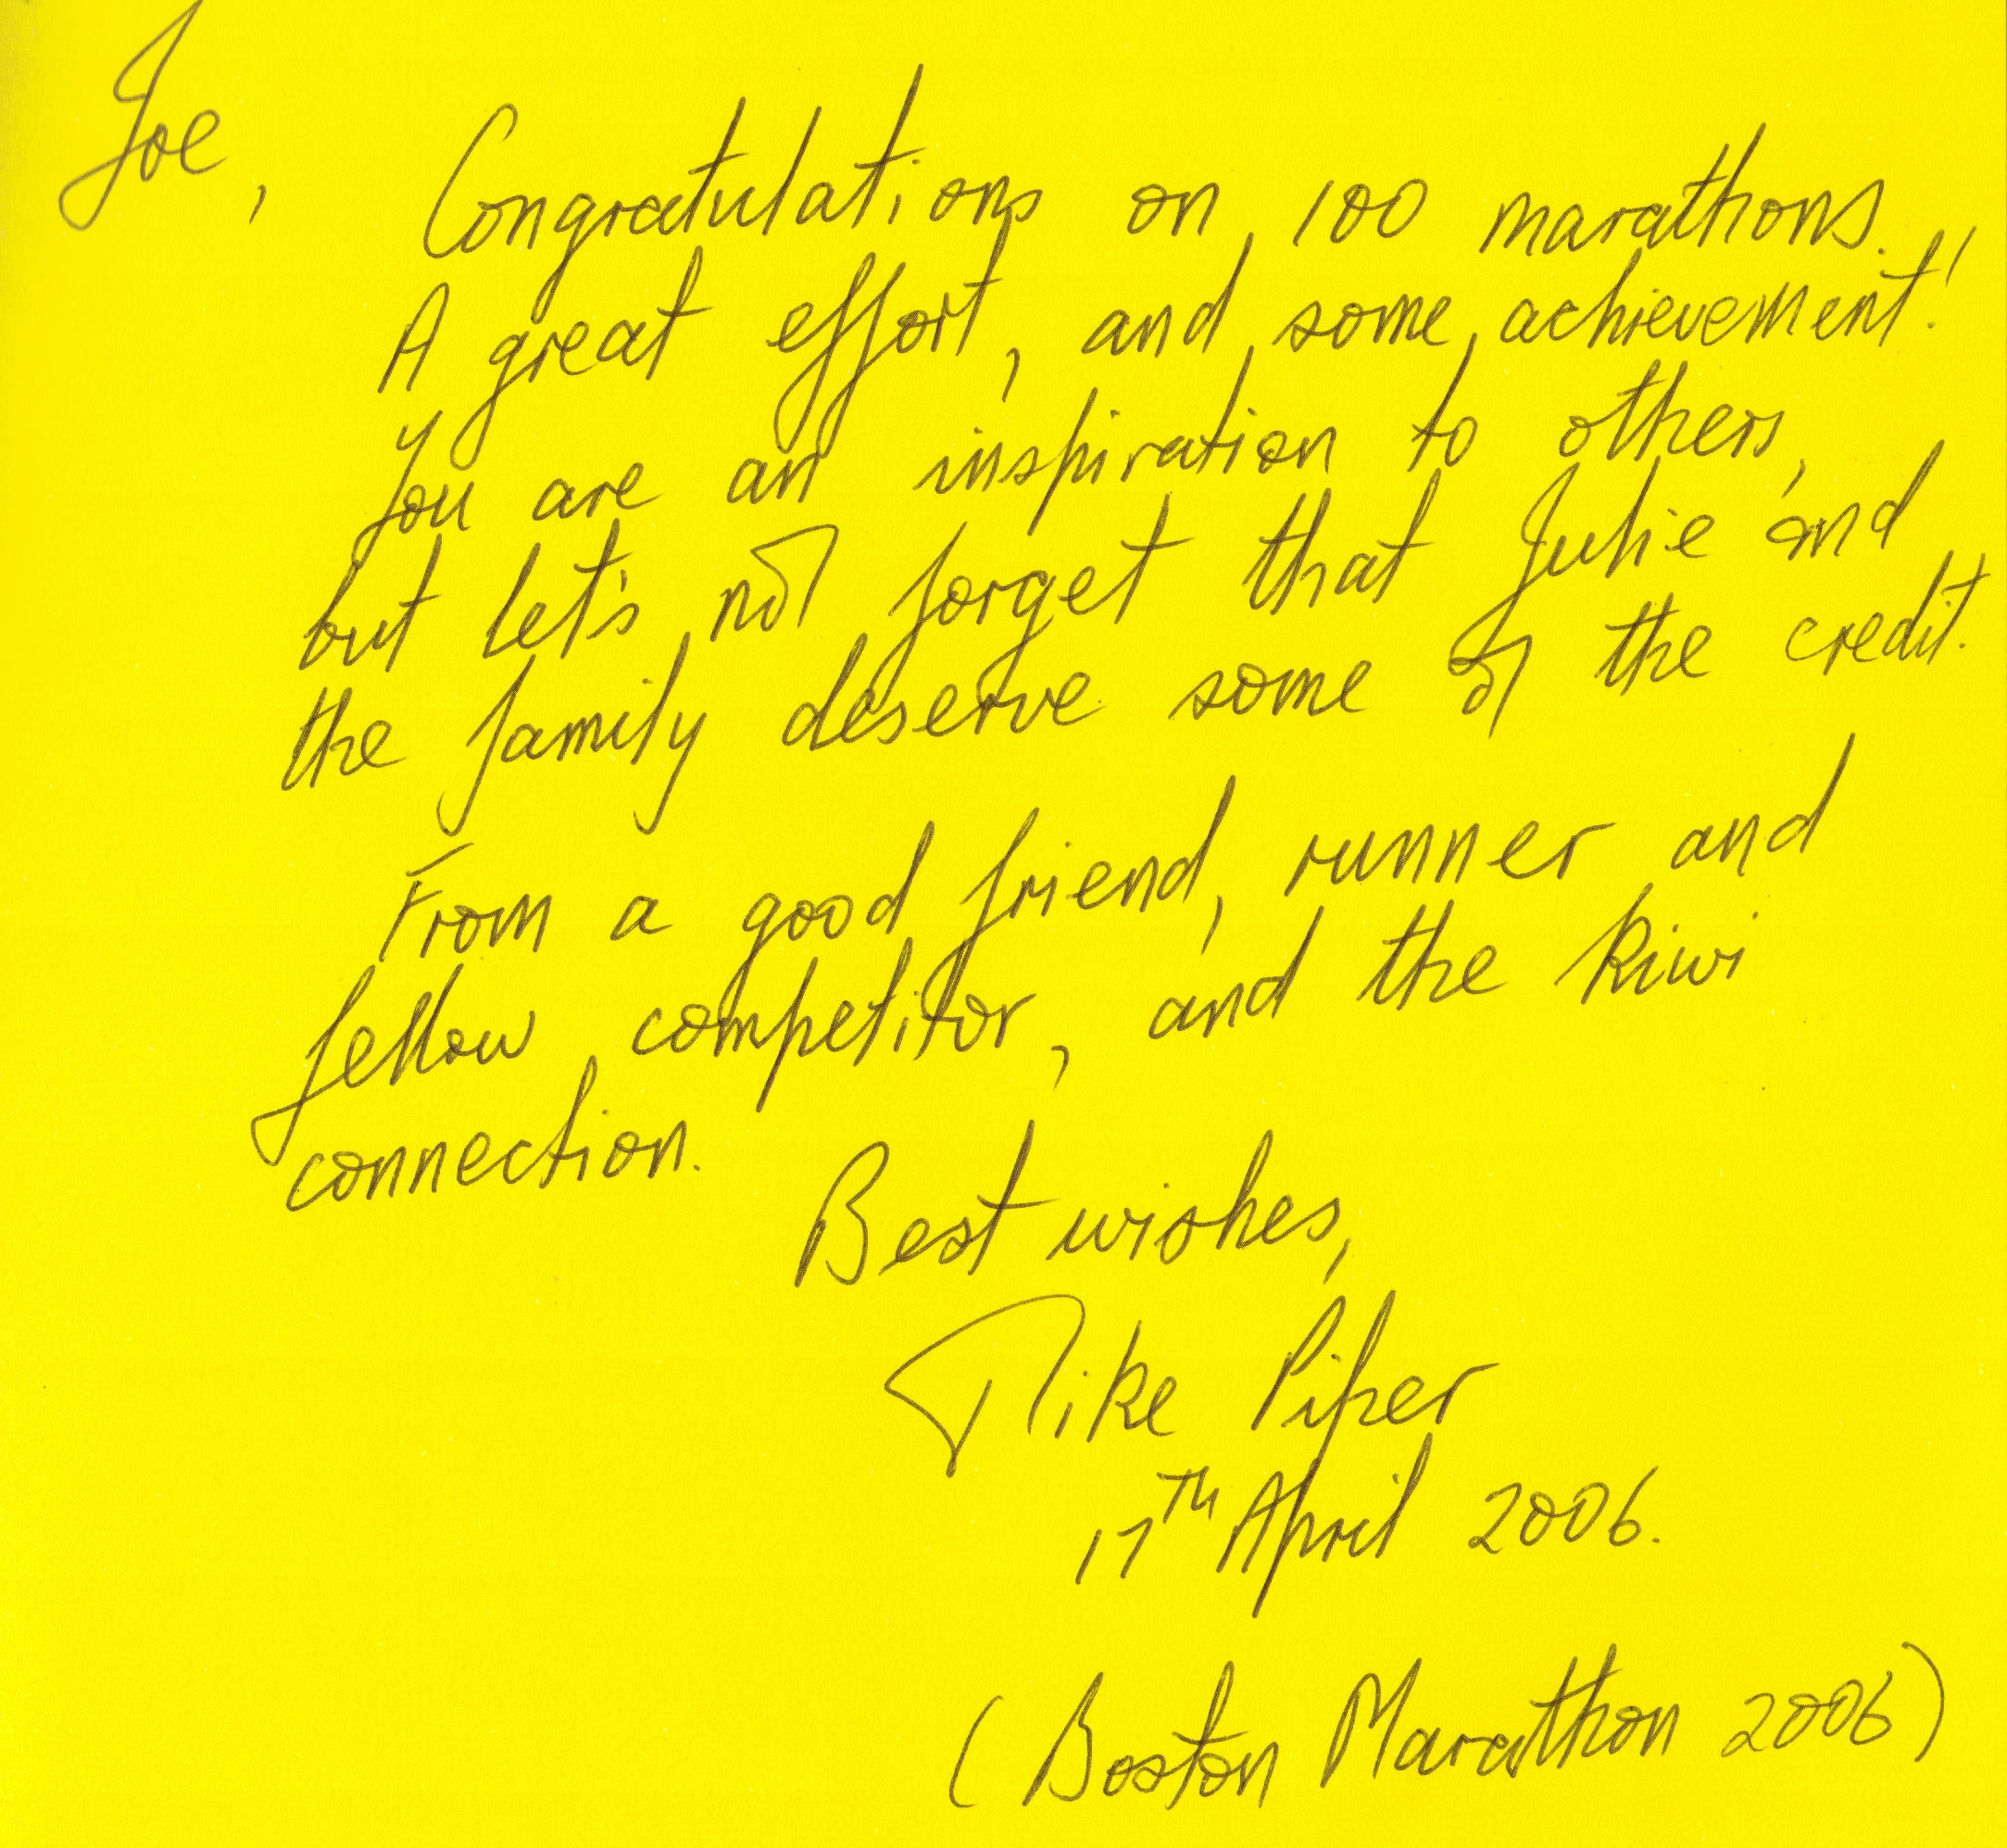 Joe,
Congratulations on 100 marathons.
A great effort, and some achievement!
You are an inspiration to others,
but let's not forget that Julie and
the family deserve some of the credit.
From a good friend, runner and
fellow competitor, and the kiwi
connection.
Best wishes,
Mike Piper
17TH April 2006.
(Boston Marathon 2006)